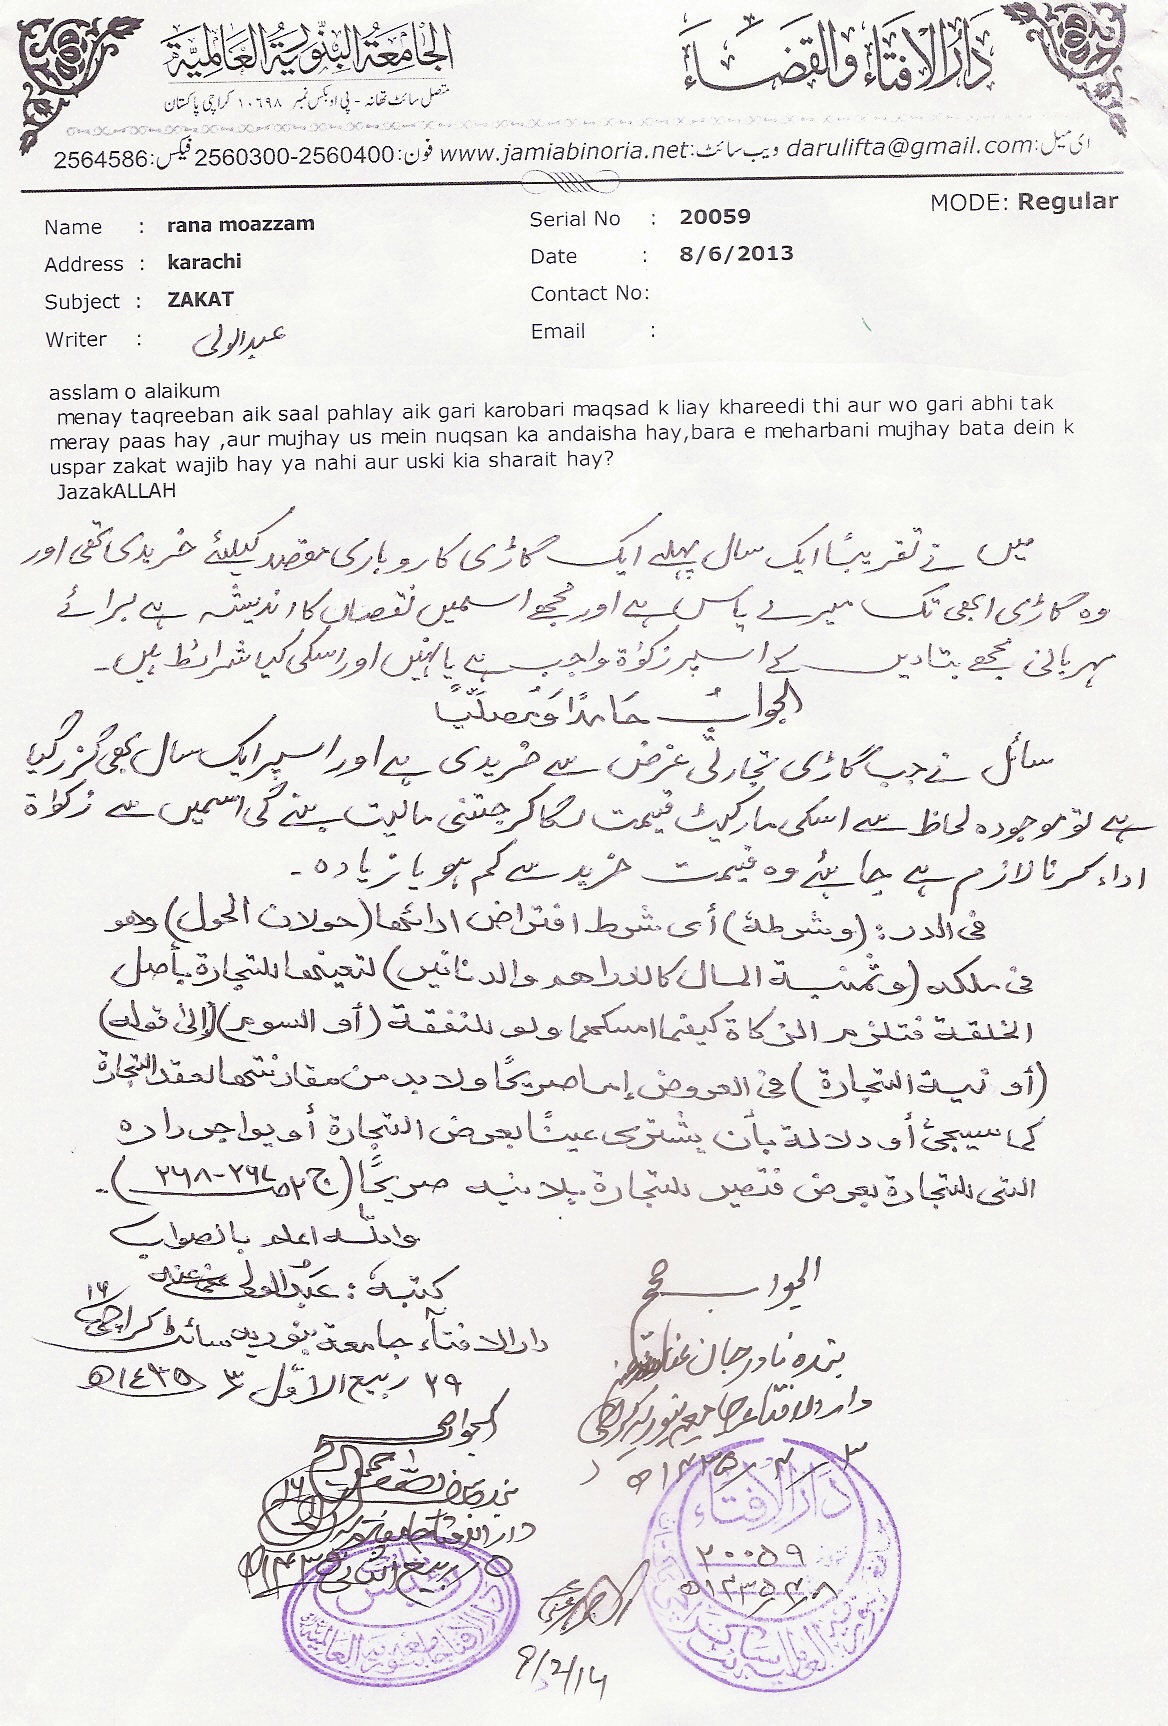 دَارُ الافتَاء والقضَاء
الجَامعَة البنّوريَّة العَالميَّة
متصل سائٹ تھانہ - پی او بکس نمبر ۱۰۶۹۸ کراچی پاکستان
ای میل: darulifta@gmail.com ویب سائٹ: www.jamiabinoria.net فون: 2560300-2560400 فیکس: 2564586
MODE: Regular
Name : rana moazzam
Serial No : 20059
Address : karachi
Date : 8/6/2013
Subject : ZAKAT
Contact No:
Writer : عبدالولی
Email :
asslam o alaikum
menay taqreeban aik saal pahlay aik gari karobari maqsad k liay khareedi thi aur wo gari abhi tak
meray paas hay ,aur mujhay us mein nuqsan ka andaisha hay,bara e meharbani mujhay bata dein k
uspar zakat wajib hay ya nahi aur uski kia sharait hay?
JazakALLAH
میں نے تقریبًا ایک سال پہلے ایک گاڑی کاروباری مقصد کیلئے خریدی تھی اور
وہ گاڑی ابھی تک میرے پاس ہے اور مجھے اسمیں نقصان کا اندیشہ ہے برائے
مہربانی مجھے بتادیں کے اسپر زکوٰۃ واجب ہے یا نہیں اور اسکی کیا شرائط ہیں۔
الجوابُ حَامدًا وَّمُصلّیًا
سائل نے جب گاڑی تجارتی غرض سے خریدی ہے اور اسپر ایک سال بھی گزر گیا
ہے تو موجودہ لحاظ سے اسکی مارکیٹ قیمت لگا کر جتنی مالیت بنے گی اسمیں سے زکوٰۃ
اداء کرنا لازم ہے چاہئے وہ قیمت خرید سے کم ہو یا زیادہ۔
فی الدر: (وشرطه) أی شرط افتراض ادائها (حولان الحول) وهو
فی ملکه (وثمنیة المال کالدراهم والدنانیر) لتعینهما للتجارة بأصل
الخلقة فتلزم الزکاة کیفما امسکهما ولو للنفقة (أو السوم) (إلیٰ قوله)
(أو نیة التجارة) فی العروض إما صریحًا ولا بد من مقارنتها لعقد التجارة
کما سیجیٔ أو دلالة بأن یشتری عینًا بعرض التجارة أو یواجر داره
التی للتجارة بعرض فتصیر للتجارة بلا نیه صریحًا (ج ۲ صـ ۲۶۷-۲۶۸)۔
واللہ اعلم بالصواب
کتبهٗ: عبدالولی عفی عنه
دارالافتاء جامعة بنوریه سائٹ کراچی ۱۶
۲۹ ربیع الاوّل ۱۴۳۵ھ
الجواب صحیح
بندہ نادر جان
دارالافتاء جامعہ بنوریہ کراچی
۳ / ۴ / ۱۴۳۵ھ
الجواب
دارالافتاء
ربیع الثانی
دَارُالافتَاء
۲۰۰۵۹
۸/۴/۱۴۳۵ھ
رئیس
دارالافتاء جامعہ بنوریہ العالمیة
۹/۲/۱۴